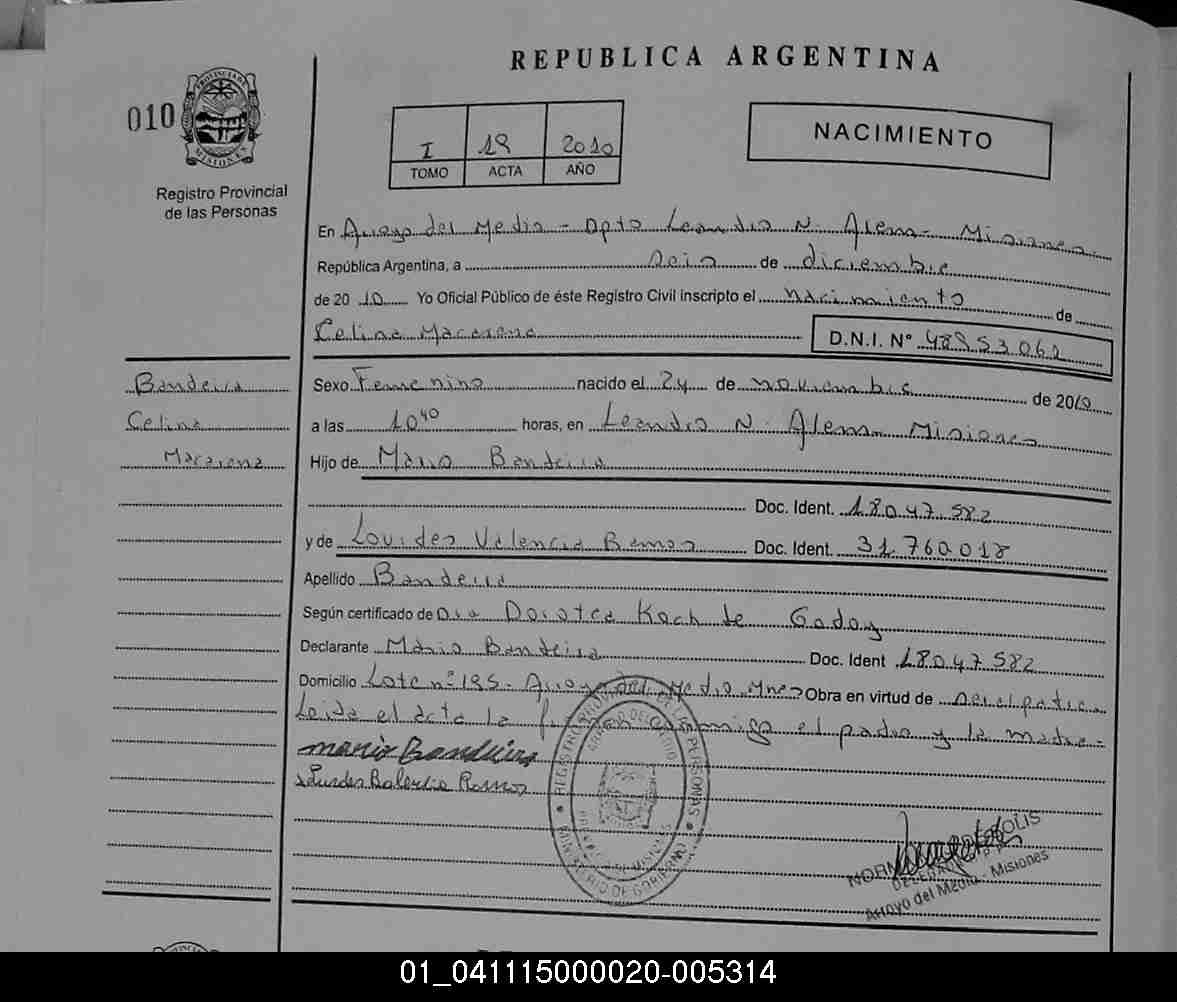 REPUBLICA ARGENTINA
010
PROVINCIA DE MISIONES
Registro Provincial
de las Personas
I 19 2010
TOMO ACTA AÑO
NACIMIENTO
En Arroyo del Medio - Dpto Leandro N. Alem - Misiones
República Argentina, a seis de diciembre
de 2010 Yo Oficial Público de éste Registro Civil inscripto el nacimiento de
Celina Macarena
D.N.I. Nº 48953062
Bandeira
Celina
Macarena
Sexo Femenino nacido el 24 de noviembre de 2010
a las 10 40 horas, en Leandro N. Alem - Misiones
Hijo de Mario Bandeira
Doc. Ident. 18.047.582
y de Lourdes Valencia Ramos Doc. Ident. 31.760.018
Apellido Bandeira
Según certificado de Dra Dorotea Koch de Godoy
Declarante Mario Bandeira Doc. Ident 18047582
Domicilio Lote nº 195 - Arroyo del Medio Mnes Obra en virtud de
Leida el acta la conmigo el padre y la madre -
Mario Bandeira
Lourdes Balencia Ramos
REGISTRO PROVINCIAL DE LAS PERSONAS
ARROYO DEL MEDIO
PROVINCIA DE MISIONES
MINISTERIO DE GOBIERNO
DELEGADA
Arroyo del Medio - Misiones
01_041115000020-005314